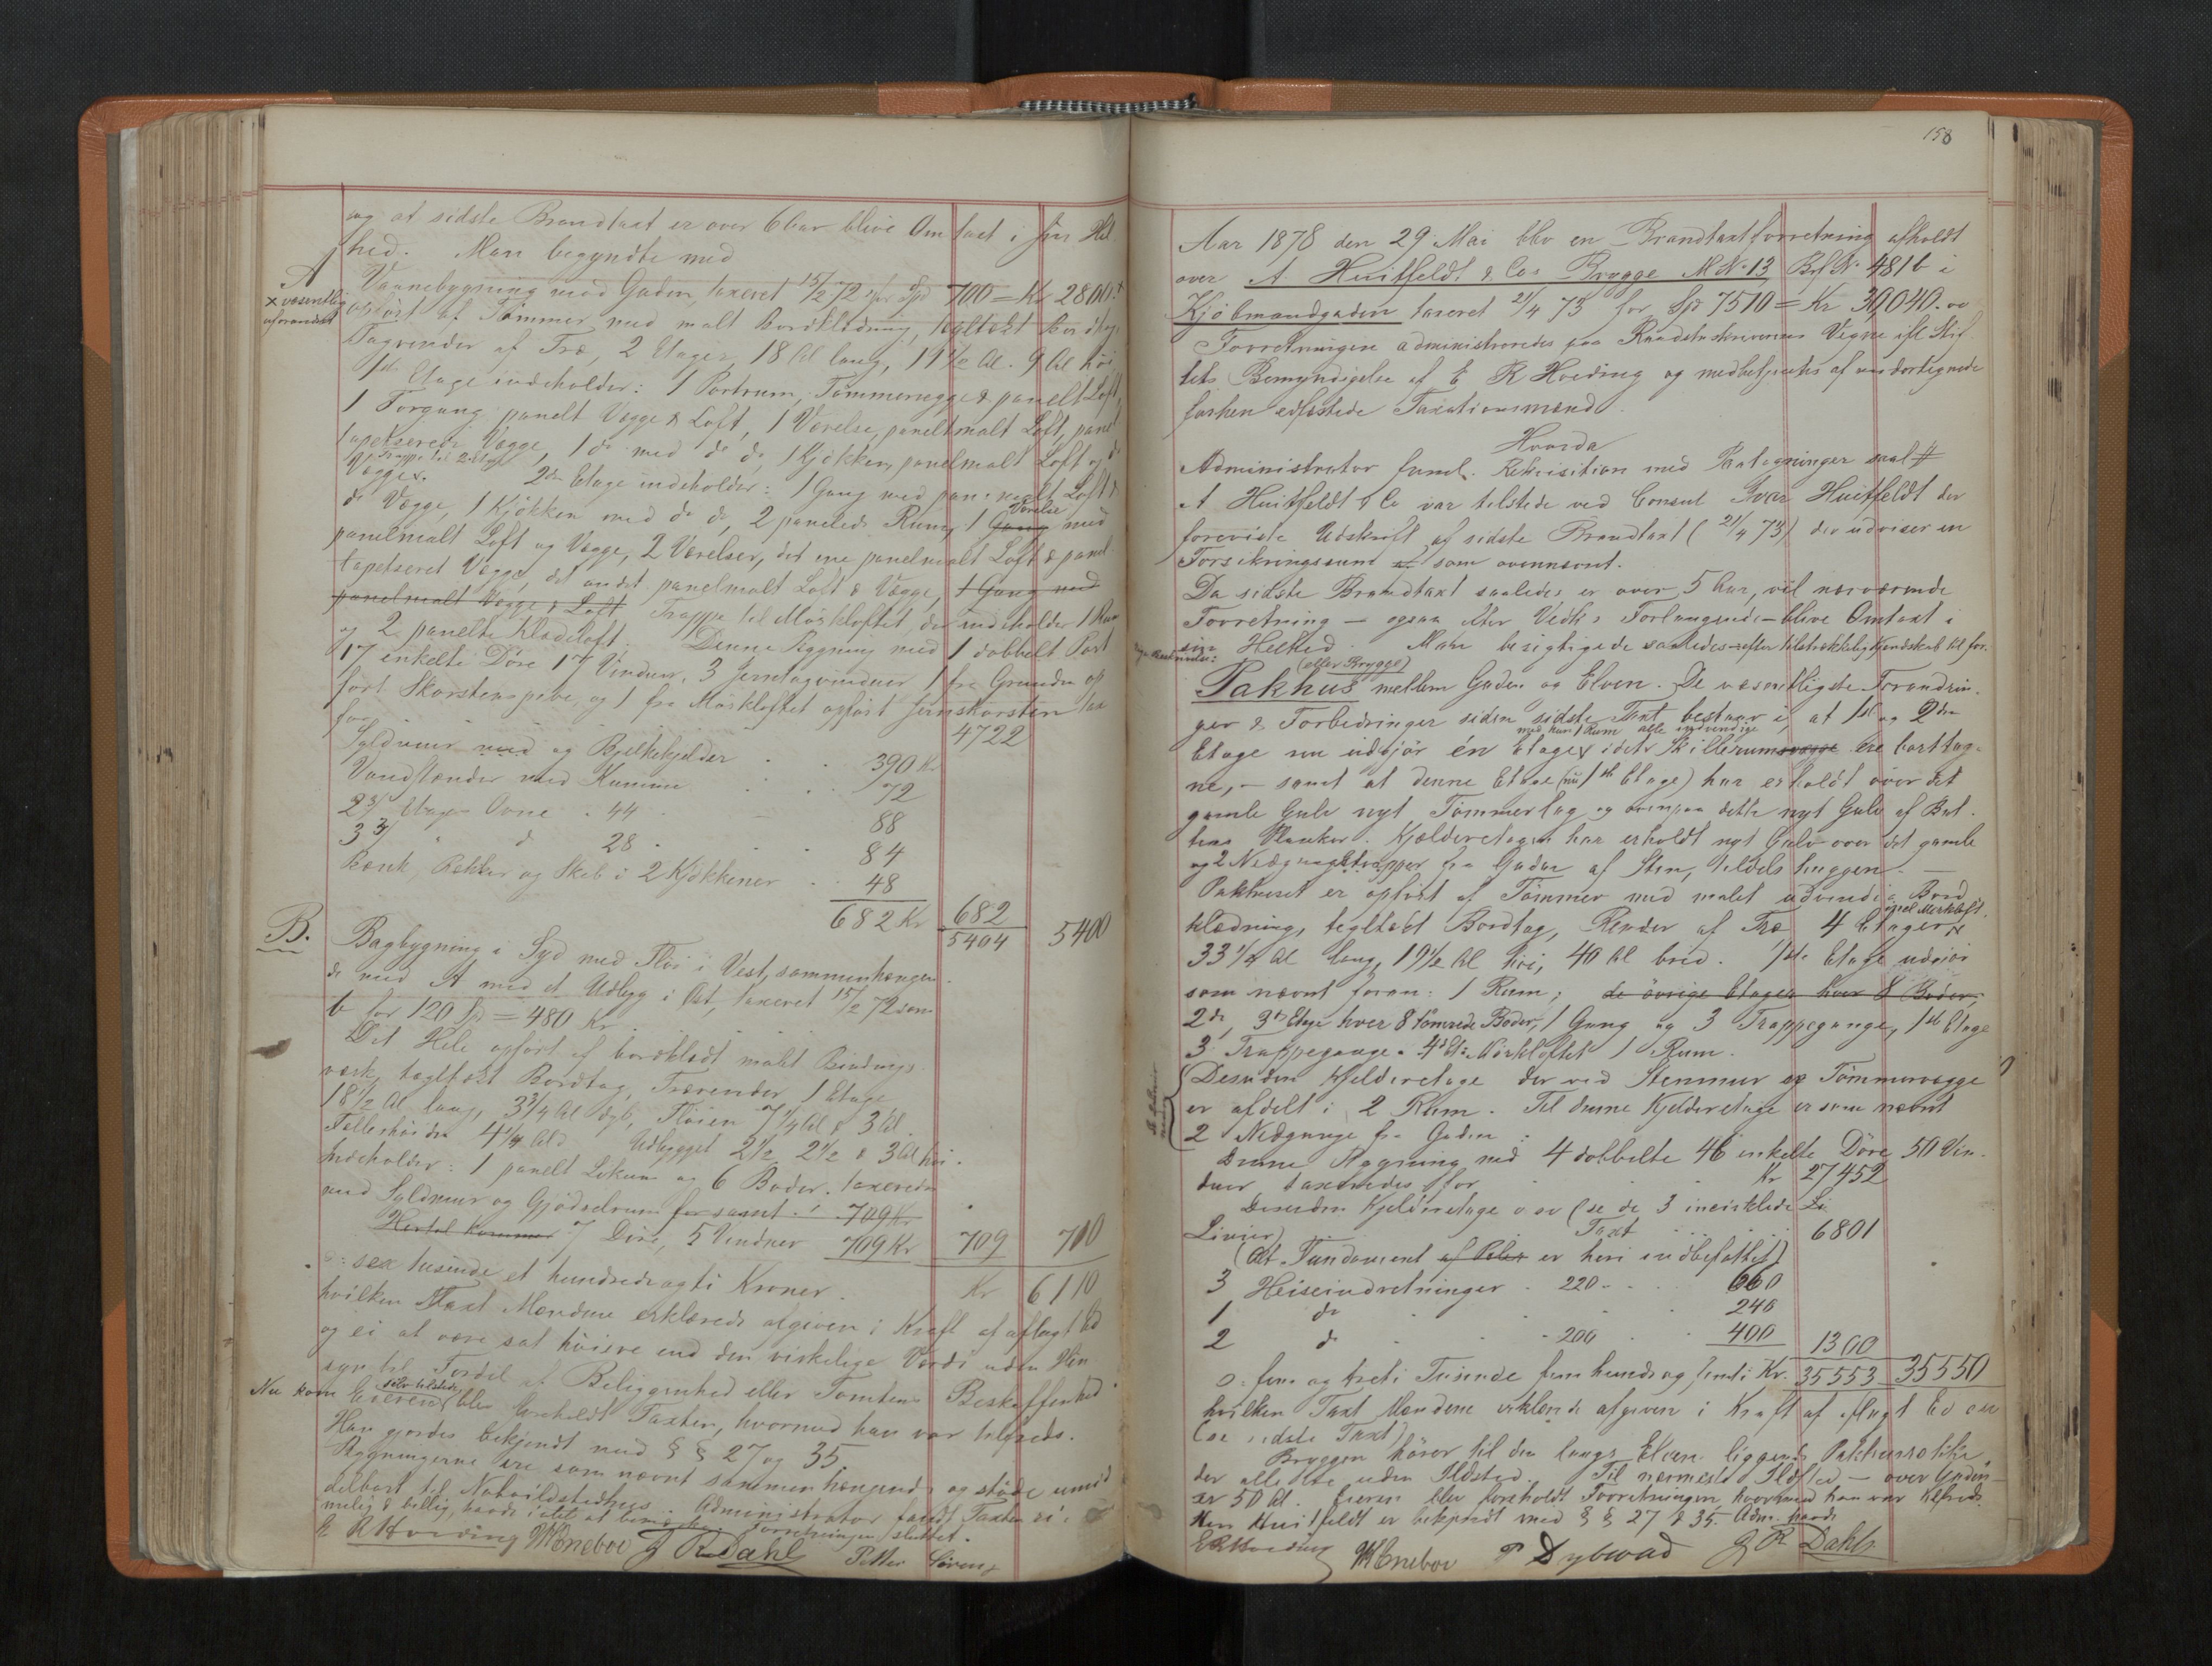 og at sidste Brandtaxt er over 6 Aar blive Omtaxt i sin Hel
hed. Man begyndte med
A
Vaanebygning mod Gaden, taxeret 15/2 72 for Spd 700 = Kr 2800
x væsentlig
uforandret
opført af Tømmer med malt Bordklædning, tegltækt Bordtag
Tagrender af Træ, 2 Etager, 18 Al lang, 11 1/2 Al. 9 Al høi
1ste Etage indeholder: 1 Portrum, Tømmervægge & panelt Loft,
1 Forgang panelt Vægge & Loft, 1 Værelse, paneltmalt Loft, panel
tapetserede Vægge, 1 do med do do, 1 Kjøkken, panelmalt Loft og do
Trappe til 2 Etage
Vægge x. 2den Etage indeholder: 1 Gang med panelmalt Loft &
do Vægge, 1 Kjøkken med do do, 2 panelede Rum, 1 Gang med
Værelse
panelmalt Loft og Vægge, 2 Værelser, det ene panelmalt Loft & panel
tapetseret Vægge, det andet panelmalt Loft & Vægge, 1 Gang med
panelmalt Vægge & Loft Trappe til Mørkloftet, der indeholder 1 Rum
og 2 panelte Klædeloft. Denne Bygning med 1 dobbelt Port
17 enkelte Døre 17 Vinduer, 3 Jerntagvinduer 1 fra Grunden op
ført Skorstenspibe, og 1 fra Mørkloftet opført Jernskorsten tax
for 4722
Syldmur med og Bjelkekjelder 390 Kr
Vandstænder med Kumme 72
2 3/ Etages Ovne . 44 88
3 3/ " d 28 84
Bænk, Rækker og Skab i 2 Kjøkkener 48
682 Kr 682
5404 5400
B.
Bagbygning i Syd med Fløi i Vest, sammenhængen
de med A med et Udbyg i Øst, taxeret 15/2 72 som
b for 120 Sp = 480 Kr
Det Hele opført af bordklædt malet Bindings
værk, tegltækt Bordtag, Trærender 1 Etage
18 1/2 Al lang, 3 3/4 Al dyb, Fløien 7 1/4 Al & 3 Al.
Fælleshøiden 4 1/4 Al. Udbygget 2 1/2, 2 1/2 & 3 Al høi.
Indeholder: 1 panelt Lokum og 6 Boder. taxeredes
med Syldmur og Gjødselrum for samt 709 Kr
Hertil kommer 7 Døre, 5 Vinduer 709 Kr 709 710
o: sex tusinde et hundrede og ti Kroner. Kr 6110
hvilken Taxt Mændene erklærede afgiven i Kraft af aflagt Ed
og ei at være sat høiere end den virkelige Værdi uden Hen
syn til Fordel af Beliggenhed eller Tomtens Beskaffenhed
selv tilstede
Nu kom Eieren blev foreholdt Taxten, hvormed han var tilfreds.
Han gjordes bekjendt med § § 27 og 35.
Bygningerne ere som nævnt sammenhængende og støde umid
delbart til Administrator fandt Taxten ri
melig & billig, havde intet at bemærke Forretningen sluttet.
E R Hoeding Petter
J R Dahl

158
Aar 1878 den 29 Mai blev en Brandtaxtforretning afholdt
over A Huitfeldt & Cos Brygge M No 13 Brf No 481b i
Kjøbmandgaden taxeret 21/4 73 for Sp 7510 = Kr 30,040.
Forretningen administreredes paa Raadstuskriverens Vegne ifl Stif
tets Bemyndigelse af E R Hoeding og medbetjentes af undertegnede
forhen edfæstede Taxationsmænd.
Hvorda
Administrator freml. Rekvisition med Paategninger saal
A Huitfeldt & Co var tilstede ved Consul Ivar Huitfeldt der
foreviste Udskrift af sidste Brandtaxt (21/4 73) der udviser en
Forsikringssum som ovennævnt.
Da sidste Brandtaxt saaledes er over 5 Aar, vil nærværende
Forretning – ogsaa efter Vedk.s Forlangende – blive Omtaxt i
sin Helhed. Man besigtigede saaledes – efter tilstrækkelig Kjendskab til for.
(eller Brygge)
Pakhus mellem Gaden og Elven. De væsentligste Forandrin
ger & Forbedringer siden sidste Taxt bestaar i, at 1ste og 2den
med kun 1 Rum alle indvendige
Etage nu udgjør én Etage x idet Skillerumsvægge ere borttag
ne, – samt at denne Etage (nu 1ste Etage) har erholdt over det
gamle Gulv nyt Tømmerlag og ovenpaa dette nyt Gulv af Bat
tens Planker. Kjælderetagen har erholdt nyt Gulv over det gamle
og 2 Nedgangstrapper fra Gaden af Sten, tildels huggen. –
Pakhuset er opført af Tømmer med malet udvendig Bord
klædning, tegltækt Bordtag, Render af Træ 4 Etager x
33 1/4 Al lang, 19 1/2 Al høi, 40 Al bred. 1ste Etage udgiør
som nævnt foran: 1 Rum; de øvrige Etager hver 8 Boder,
2de, 3de Etage hver 8 tømrede Boder, 1 Gang og 3 Trappegange, 1ste Etage
3 Trappegange. 4de Et: Mørkloftet 1 Rum.
Desuden Kjelderetage der ved Stenmur og Tømmervægge
er afdelt i 2 Rum. Til denne Kjelderetage er som nævnt
2 Nedgange fra Gaden.
Denne Bygning med 4 dobbelte 46 enkelte Døre 50 Vin
duer taxeredes for Kr 27452
Desuden Kjelderetage (se de 3 indcirklede Li
Linier) Taxt 6801
(At Fundament af Peler er heri indbefattet)
3 Heiseindretninger . 220 660
1 do 240
2 d 200 400 1300
o: fem og treti Tusinde fem hundr og femti Kr. 35553 35550
hvilken Taxt Mændene erklærede afgiven i Kraft af aflagt Ed
(se sidste Taxt)
Bryggen hører til den langs Elven liggende Pakhusrække
der alle ere uden Ildsted. Til nærmeste Ildsted – over Gaden
er 50 Al. Eieren blev foreholdt Forretningen, hvormed han var tilfreds.
Herr Huitfeldt er bekjendt med § § 27 & 35. Adm. havde
E R Hoeding P Dybwad J R Dahl